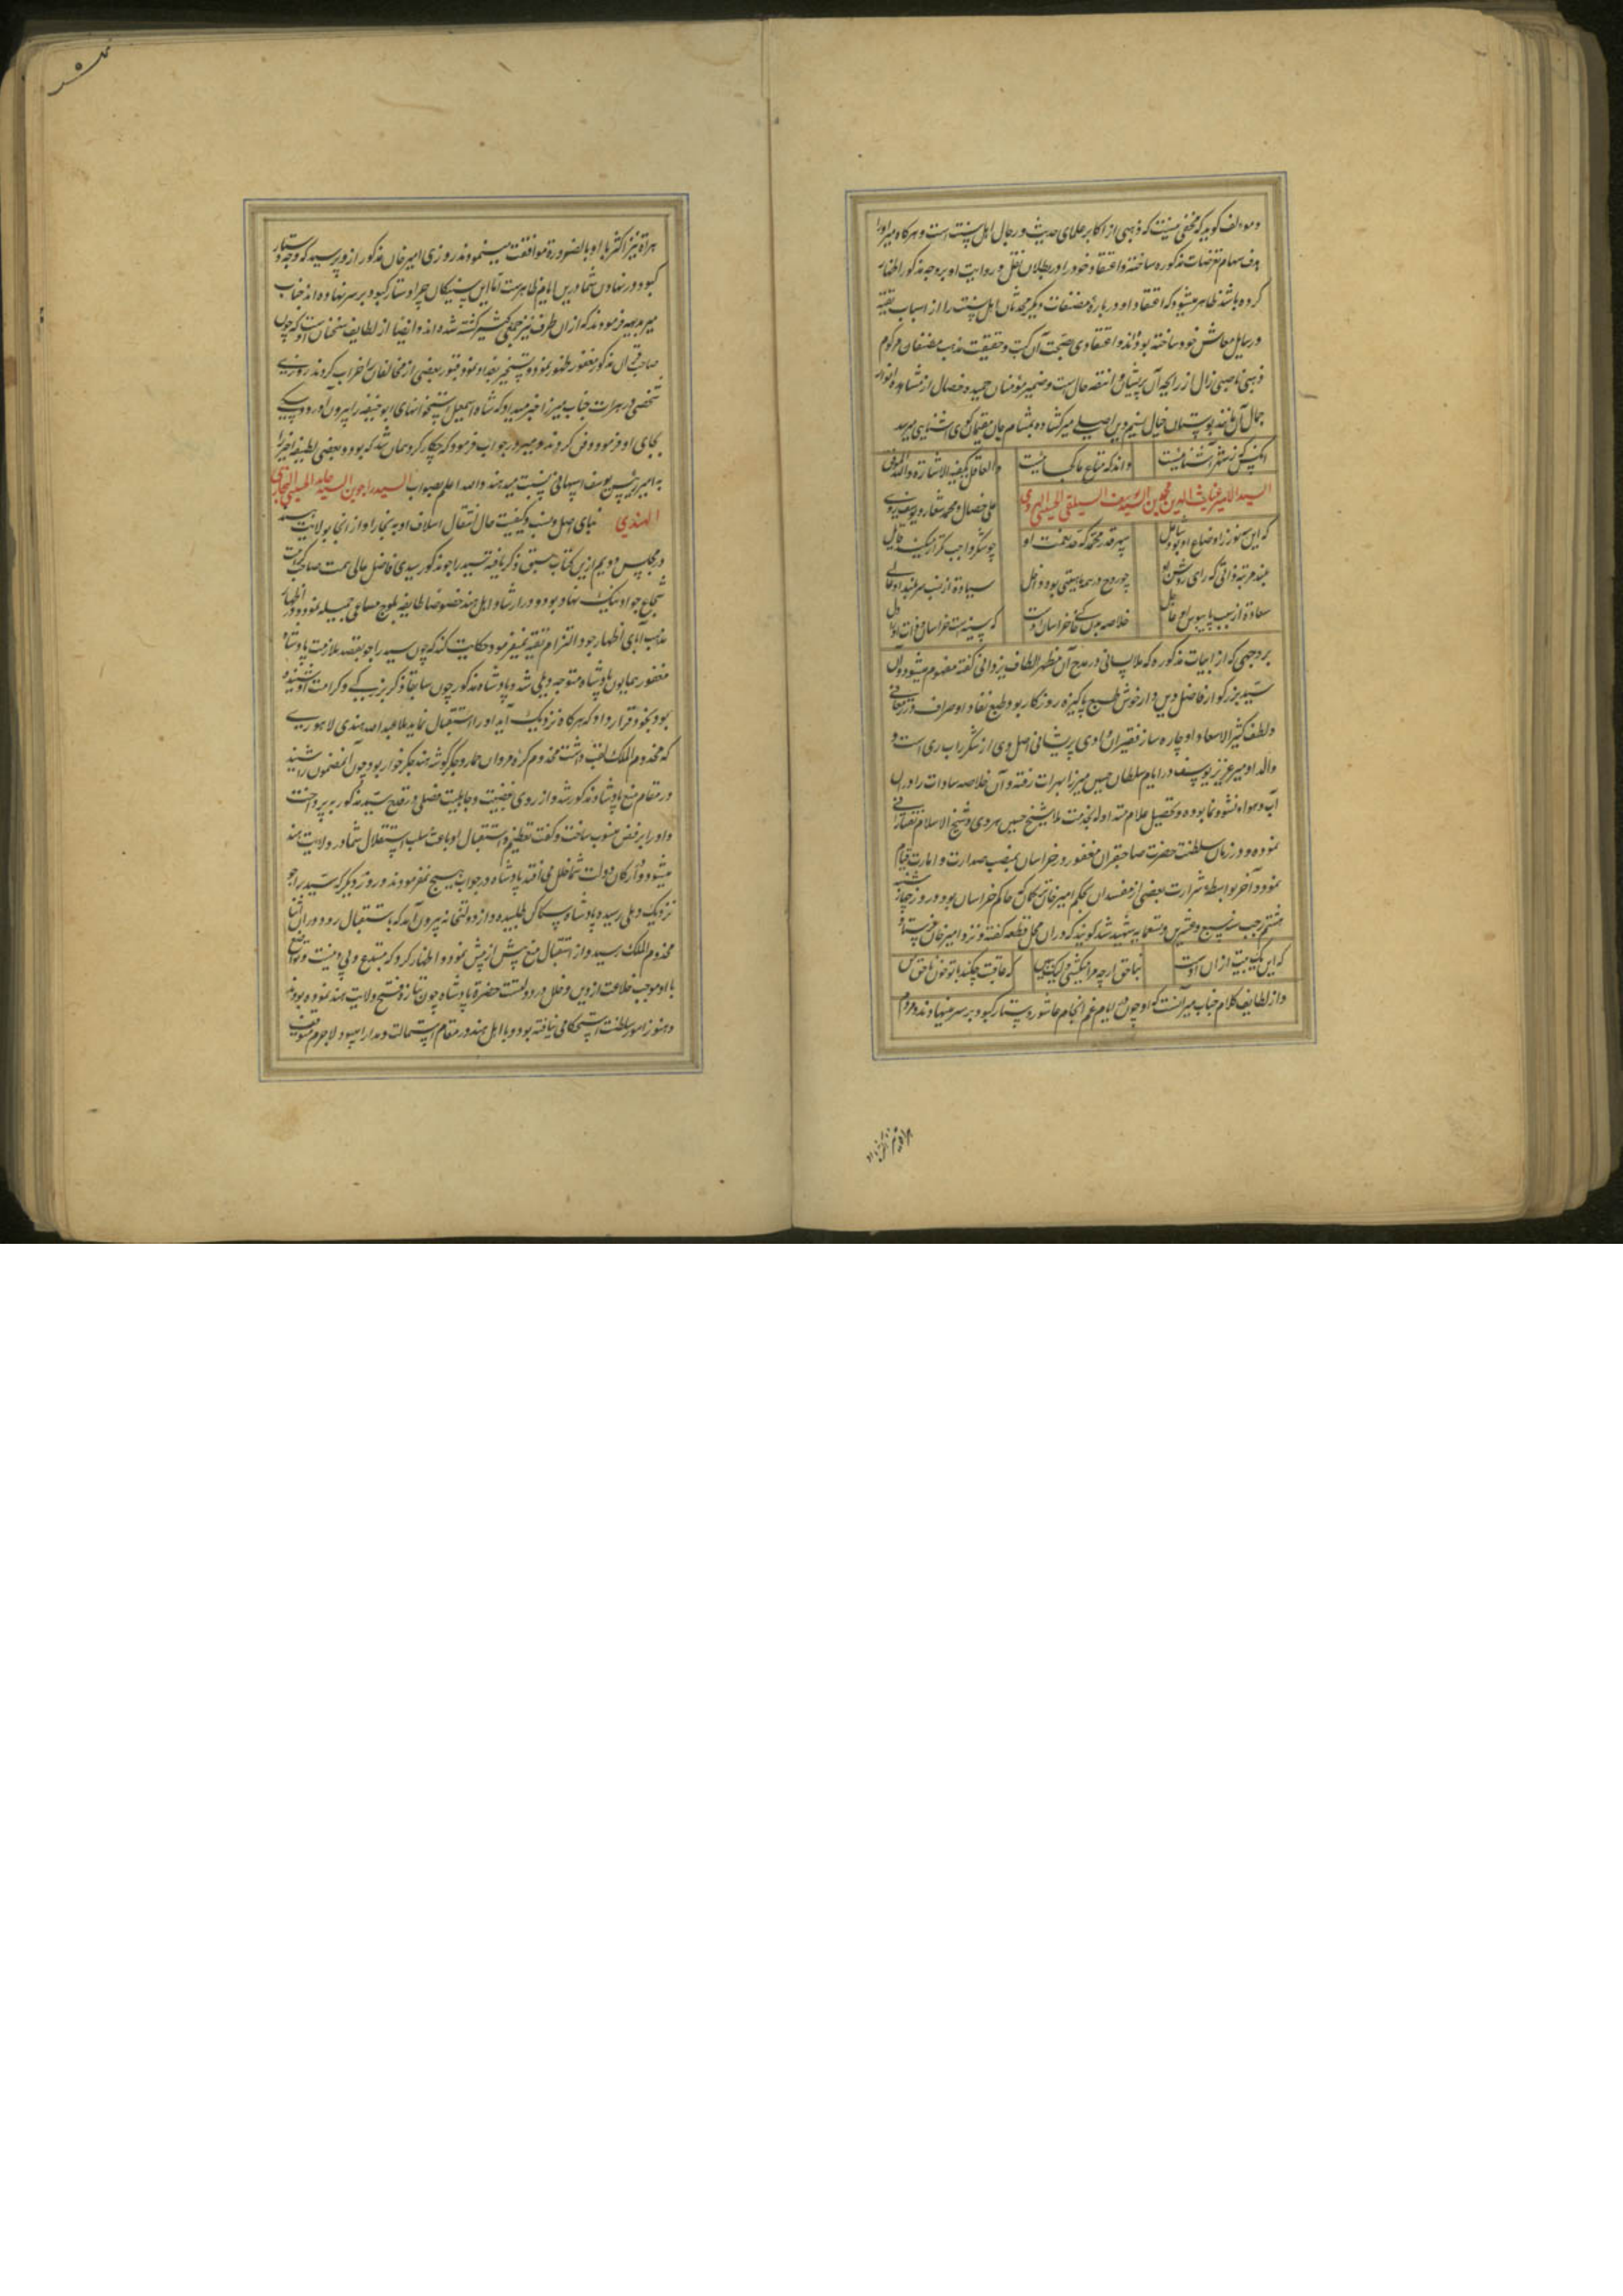 و مؤلف گوید که مخفی نیست که ذهبی از اکابر علمای حدیث و رجال اهل سنت است و هرگاه میر او را
هدف سهام تعرضات مذکوره ساخته و اعتقاد خود را در بطلان نقل و روایت او بر وجه مذکور
کرده باشد ظاهر میشود که اعتقاد او در باره مصنفات دیگر محدثان اهل سنت را از اسباب تقیه
و رسایل معاش خود ساخته بودند و اعتقادی بصحت آن کتب و حقیقت مذهب مصنفان مرکوم
ذهبی ناصبی زال از رایحه آن پریشان و حال است و ضمیر مؤمنان حمیده خصال از مشاهده انوار
جمال آن خیال نسیم دین اصیل میر گشاده بمشام جان آشنایی میرسد
آنکس که ز شهر آشنائیست
داند که متاع ما کجائیست
و العاقل یکفیه الاشارة والله الموفق
السید الامیر غیاث الدین محمد بن السید یوسف الحسینی الهروی
علی خصال و محمد شعار و یوسف روی
که این هنوز ز اوضاع او بود
سپهر قدر محمد که
چو شکر واجب
بلند مرتبه ذاتی که رای روشن او
چو روح در همه بیتی بود
سیادة از نسب سربلند او عالی
سعادة از سبب پایبوس او حاصل
خلاصه خراسان اوست
که سینه ست خراسان و ذات او دل
بر وجهی که از ابیات مذکوره که ملا بنائی در مدح آن مظهر الطاف یزدانی گفته مفهوم میشود آن
سید بزرگوار فاضل دین دار خوش طبع پاکیزه روزگار بود و طبع نقاد او صراف
و لطف کثیر الاسعاد او چاره ساز فقیران وادی پریشانی اصل وی از است و
والد او میر عزیز یوسف در ایام سلطان حسین میرزا بهرات رفته و آن خلاصه سادات را در آن
آب و هوا نشو و نما بوده و تحصیل علوم متداوله بخدمت ملا شیخ حسین هروی و شیخ الاسلام تفتازانی
نموده و در زمان سلطنت حضرت صاحبقران مغفور در خراسان بمنصب صدارت و امارت قیام
نمود و آخر بواسطه شرارت بعضی از مفسدان بحکم امیر خان ترکمان که حاکم خراسان بود در روز چهارشنبه
هشتم رجب سنه سبع و عشرین و تسعمایه شهید شد گویند که در آن محل قطعه گفته و نزد امیر خان فرستاد
که این یک بیت از آن اوست
بناحق ارچه مرا میکشی ولیک ببین
که عاقبت چکند با تو خون ناحق من
و از لطایف کلام جناب میر آنست که او چون در ایام غم انجام عاشوره دستار کبود بر سر مینهادند و مردم
هراة نیز اکثر با او بالضرورة موافقت مینمودند روزی امیر خان مذکور از او پرسید که وجه دستار
کبود در نهادن شما درین ایام ظاهرست آیا این سنیکان چرا دستار کبود بر سر نهاده اند جناب
میر بدیهه فرمودند که از آن طرف نیز جمعی کثیر کشته شده اند و ایضا از لطایف سخنان اوست که چون
صاحبقران مذکور مغفور ظهور نمود و تسخیر بغداد نمود و قبور بعضی از مخالفان را خراب کردند روزی
شخصی در هرات جناب میر را خبر میداد که شاه اسمعیل استخوانهای ابو حنیفه را بیرون آورد و سگی
بجای او فرمود دفن کردند و میر در جواب فرمود که چکار کرد همان شد که بود و بعضی لطیفه اخیر را
به امیر یوسف اسپهانی نسبت میدهند والله اعلم بصواب السید راجو بن السید حامد الحسینی البخاری
الهندی نبای اصل و نسب و کیفیت حال انتقال اسلاف او به بخارا و از آنجا بولایت هند
در مجلس دویم ازین کتاب سبق ذکر یافته سید راجو مذکور سیدی فاضل عالی همت صاحب کرامت
شجاع جواد نیک نهاد بود و در ارشاد اهل هند خصوصا طایفه بلوچ مساعی جمیله نموده در اظهار
مذهب آبای اظهار خود التزام تقیه نمیفرمود حکایت کنند که چون سید راجو بقصد ملازمت پادشاه
مغفور همایون پادشاه متوجه دهلی شد و پادشاه مذکور چون سابقا ذکر بزرگی و کرامت او شنیده
بود بخود قرار داد که هرگاه نزدیک آید او را استقبال نماید ملا عبدالله هندی لاهوری
که مخدوم الملک لقب داشت مخدوم کره مروان حمار و جگر گوشه هند جگر خوار بود چون آن مضمون را شنید
در مقام منع پادشاه مذکور شد و از روی عصبیت و جاهلیت فصلی در قدح سید مذکور بر پرداخت
و او را برفض منسوب ساخت و گفت تعظیم و استقبال او باعث سلب استقلال شما در ولایت هند
میشود و در ارکان دولت شما خلل می افتد پادشاه در جواب هیچ نفرمودند و روز دیگر که سید راجو
نزدیک دهلی رسیده پادشاه طلبیده و از دولتخانه بیرون آمد که باستقبال رود در آن اثنا
مخدوم الملک رسید و از استقبال منع بیش از پیش نمود و اظهار کرد که مبتدع و بی دینست و تواضع
با او موجب خلاعت از دین و خلل در دولتست حضرة پادشاه چون تازه فتح ولایت هند نموده بودند
و هنوز امور سلطنت استحکامی نیافته بود و با اهل هند در مقام استمالت و مدارا میبود لاجرم